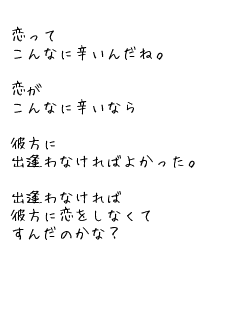 恋って
こんなに辛いんだね。
恋が
こんなに辛いなら
彼方に
出逢わなければよかった。
出逢わなければ
彼方に恋をしなくて
すんだのかな？